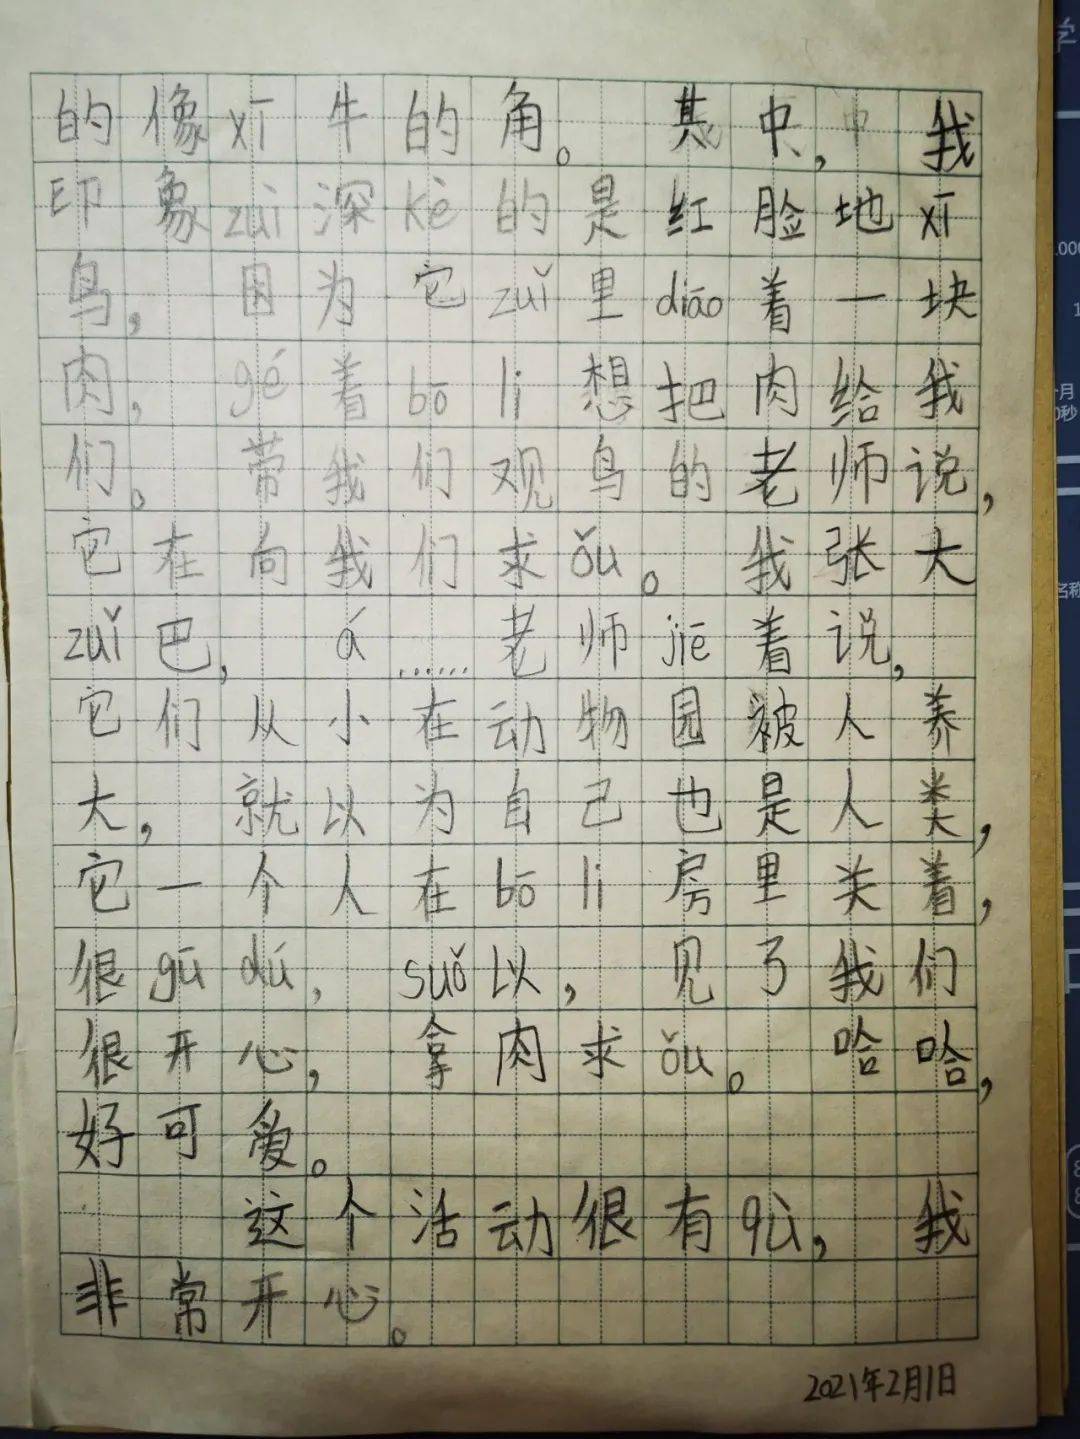 的像xī牛的角。其中,中我
印象zuì深kè的是红脸地xī
鸟,因为它zuǐ里diāo着一块
肉,gé着bō li想把肉给我
们。带我们观鸟的老师说,
它在向我们求ǒu。我张大
zuǐ巴,á……老师jiē着说,
它们从小在动物园被人养
大,就以为自己也是人类,
它一个人在bō li房里关着,
很gū dú,suǒ以,见了我们
很开心,拿肉求ǒu。哈哈,
好可爱。
这个活动很有qù,我
非常开心。
2021年2月1日
学
名称